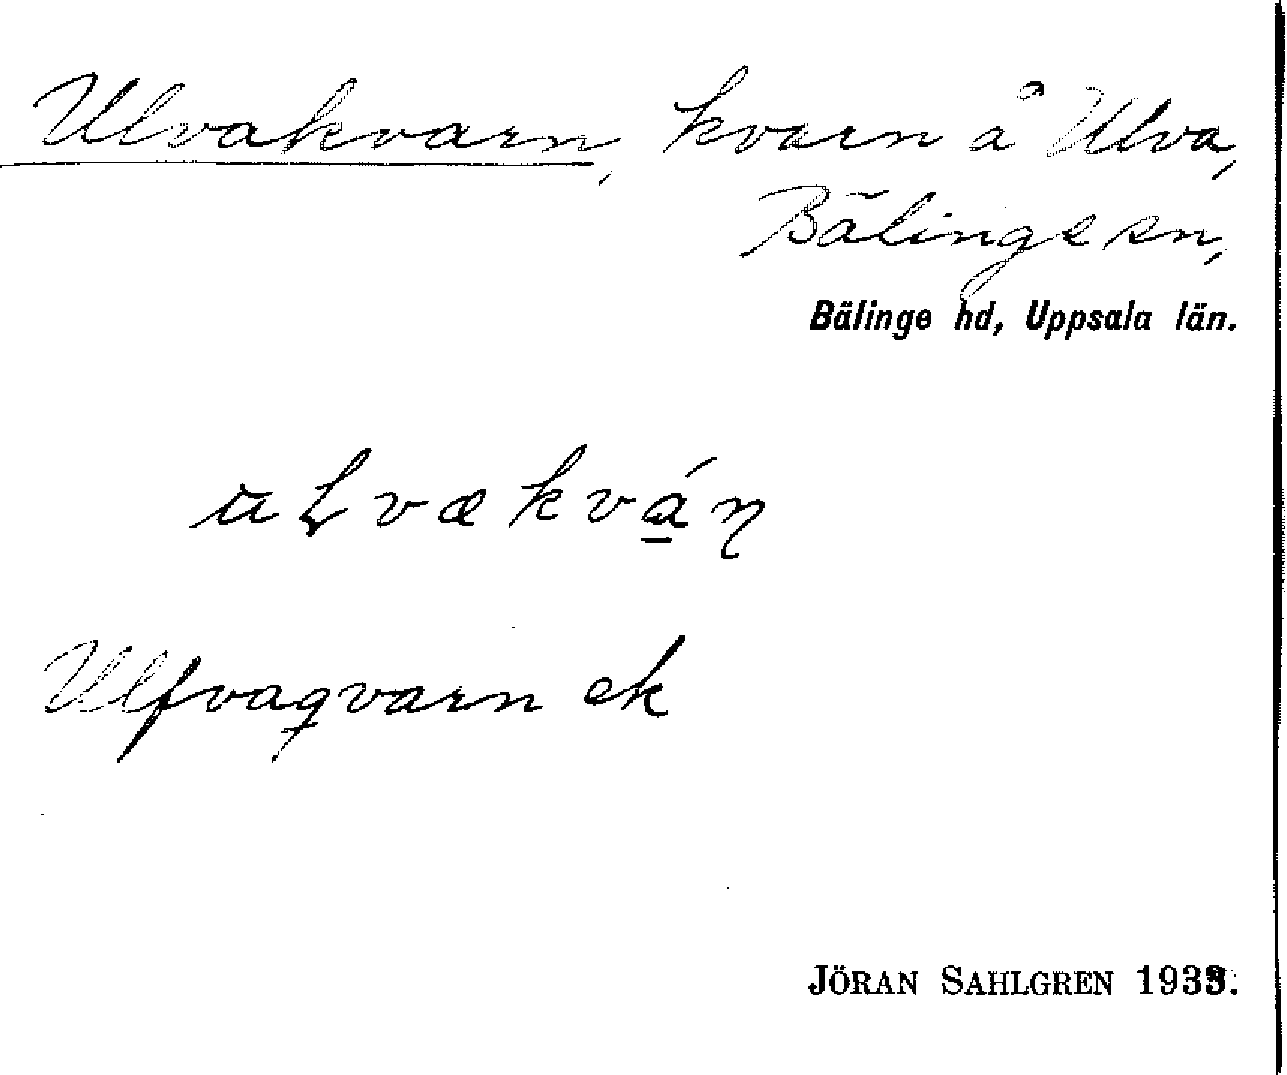 Ulvakvarn, kvarn å Ulva,
Bälinge sn,
Bälinge hd, Uppsala län.
Ulfvaqvarn ek
JÖRAN SAHLGREN